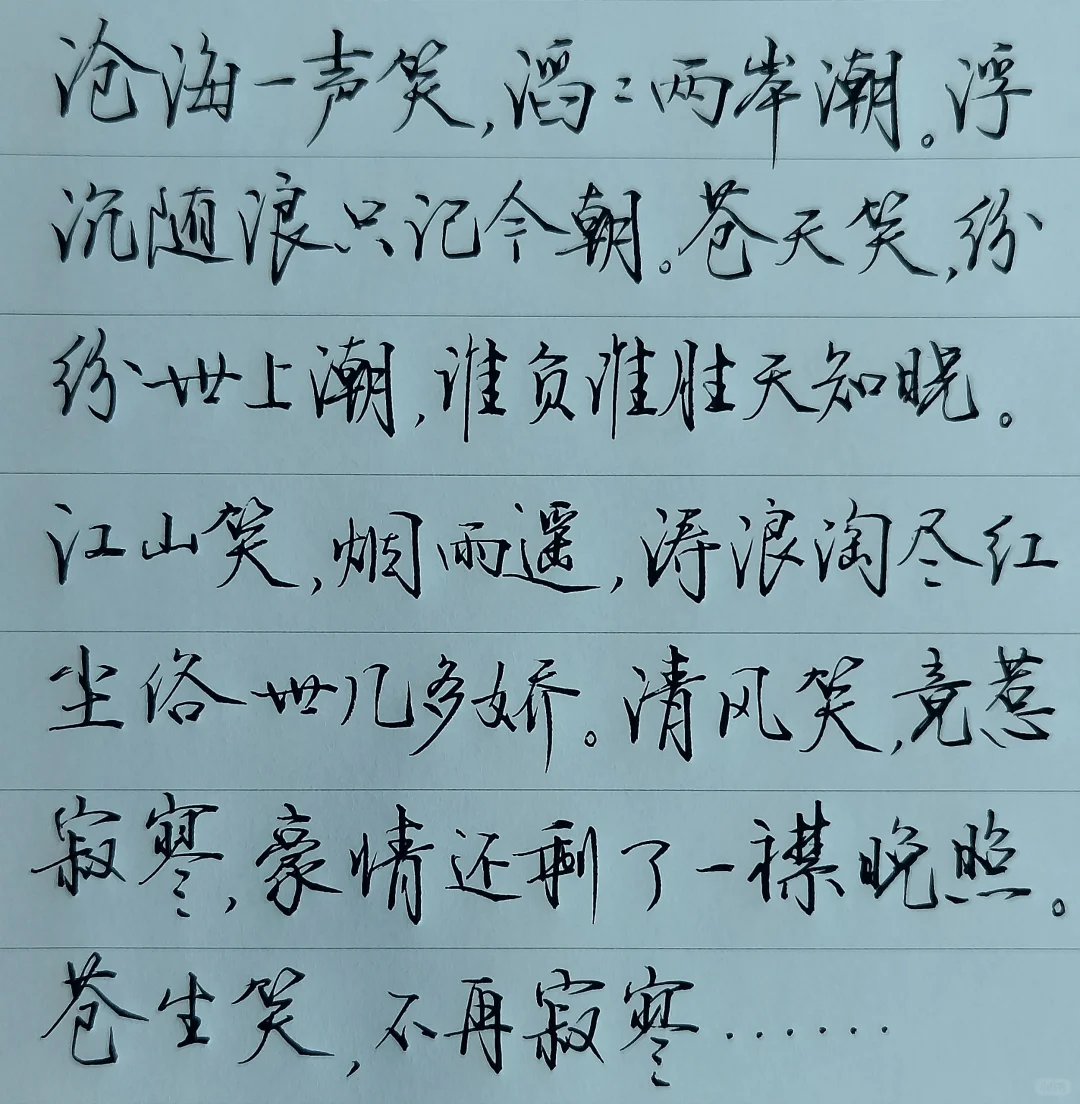 沧海一声笑,滔〻两岸潮。浮
沉随浪只记今朝。苍天笑,纷
纷世上潮,谁负谁胜天知晓。
江山笑,烟雨遥,涛浪淘尽红
尘俗世几多娇。清风笑,竟惹
寂寥,豪情还剩了一襟晚照。
苍生笑,不再寂寥……